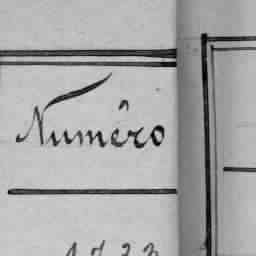 Numêro